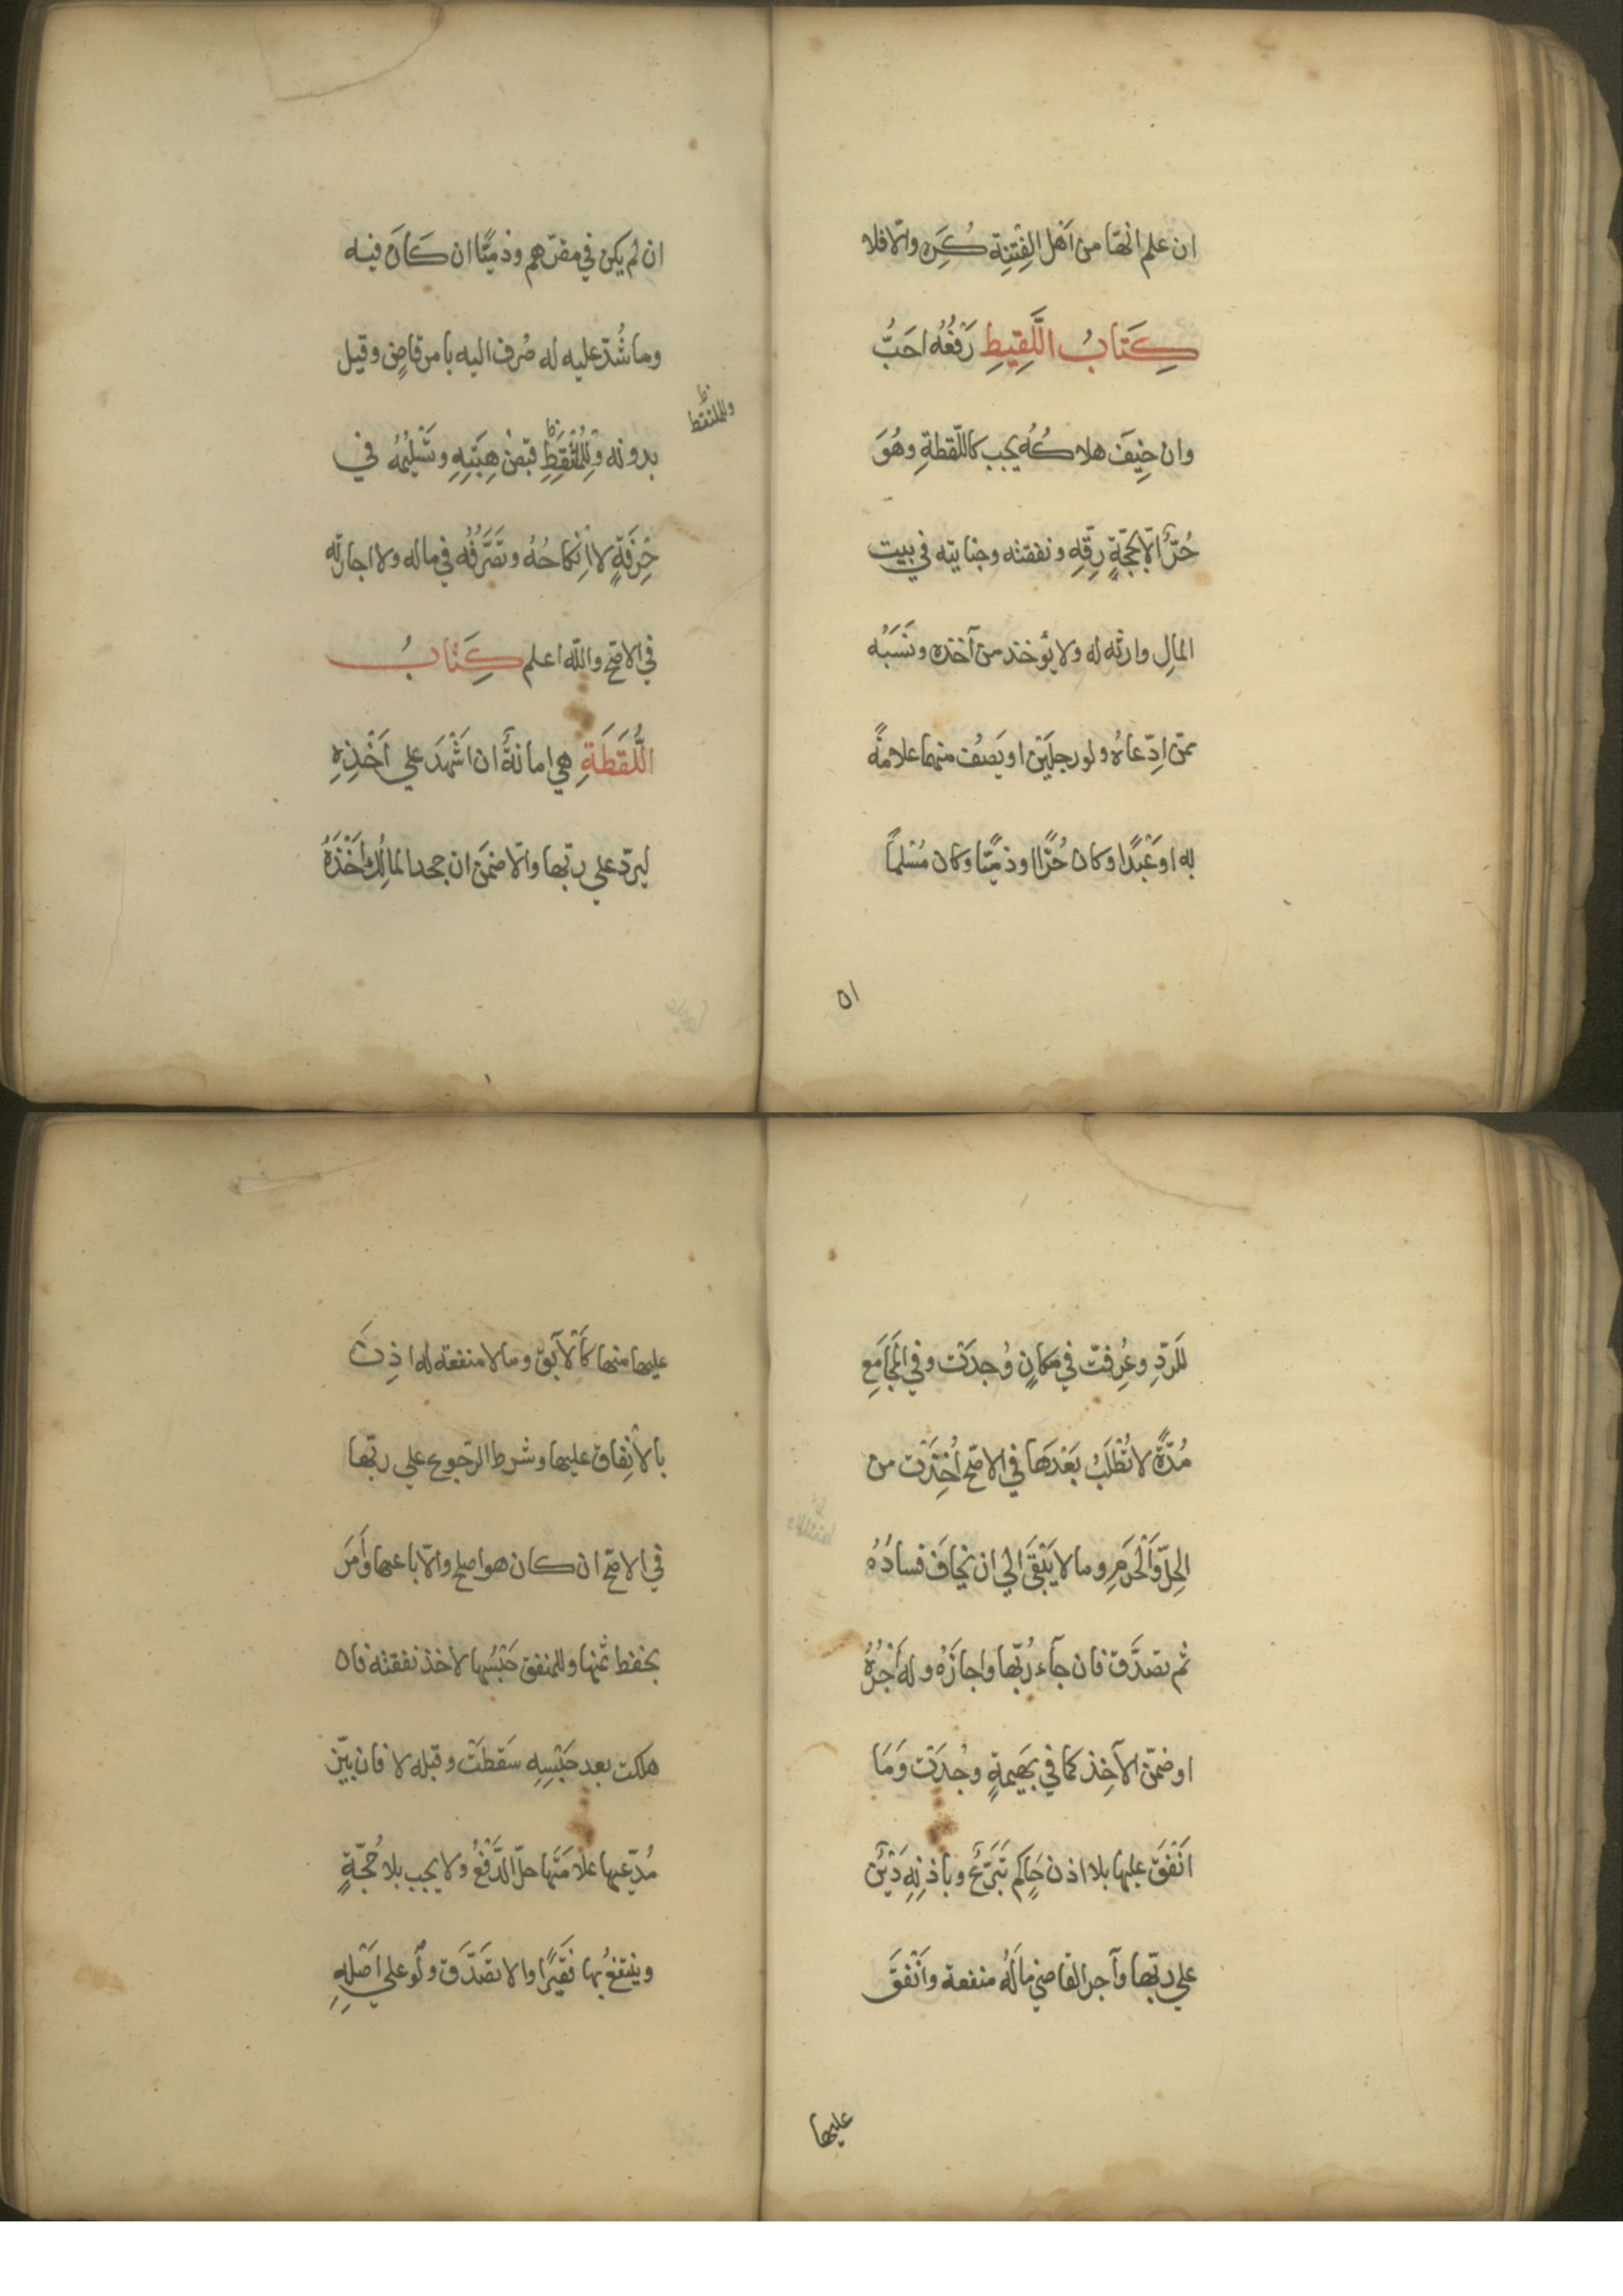 ان علم انهّا من اَهل الفِتنِة كُرِه والّا فلا
كِتَابُ اللَّقِيطِ رَفْعُه احَبُّ
وان خِيفَ هلاكُه يجب كاللّقطةِ وهُوَ
حُرٌّ الّا بحجّةِ رِقّهِ ونفقته وجنايته في بيت
المالِ وارثه له ولا يؤخذ من آخذه ونَسَبُه
ممّن اِدّعاهُ ولو رجلَين او يَصِف منهما علامةً
به او عَبْدًا وكان حُرًّا او ذميًّا وكان مُسْلمًا
ان
ان لم يكن في مقرّهم وذميًّا ان كَانَ فيه
وما شُدّ عليه له صُرِف اليه بامر قاضٍ وقيل
بدونه وَلِلمُلْتَقِطِ قَبضُ هِبَتِهِ وتَسْليمُهُ في
وللملتقط
حِرْفَةٍ لا اِنكاحُهُ وتَصَرُّفُه في ماله ولا اجارته
في الاصحّ واللّه اعلم كِتَابُ
اللُّقَطَةِ هي امانةٌ ان اَشْهَدَ علي اَخْذِهِ
ليردّ علي ربّها والّا ضمَن ان جحد المالِك اَخْذَهُ
للَردِّ وعُرِفتْ في مَكانٍ وُجِدَتْ وفي المَجَامِعِ
مُدّةً لا تُطْلَبُ بَعْدَهَا في الاصّح اُخِذَتْ من
الحِلّ وَالْحَرَمِ وما لا يَبْقَى الي ان يُخافَ فسادُهُ
ثم تصدَّق فان جآء رَبّها واجازَهُ وله اَجْرُهُ
او ضمّن الآخِذ كما في بَهيمةٍ وُجِدَتْ وَمَا
اَنْفَقَ عليها بلا اذن حَاكم تَبَرّعٌ وباذنِهِ دَيْنٌ
علي ربّها وآجر القاضي ما لَهُ منفعة واَنْفقَ
عليها
عليها منها كَالآبق وما لا منفعة له اذِنَ
بالاْنِفاق عليها وشرط الرّجوع علي ربّها
في الاصحّ ان كان هو اصلح والّا باعها وَاَمَرَ
بحفظ ثمنها وللمنفق حَبْسُها لاخذ نفقته فان
هلكت بعد حَبْسِهِ سَقطَتْ وقبله لا فان بيّن
مُدّعيها علامَتَها حلّ الدَّفْعُ ولا يجب بلا حُجّةٍ
وينتفعُ بها فَقيرًا والا تصَدّق ولَو علي اَصْلِهِ